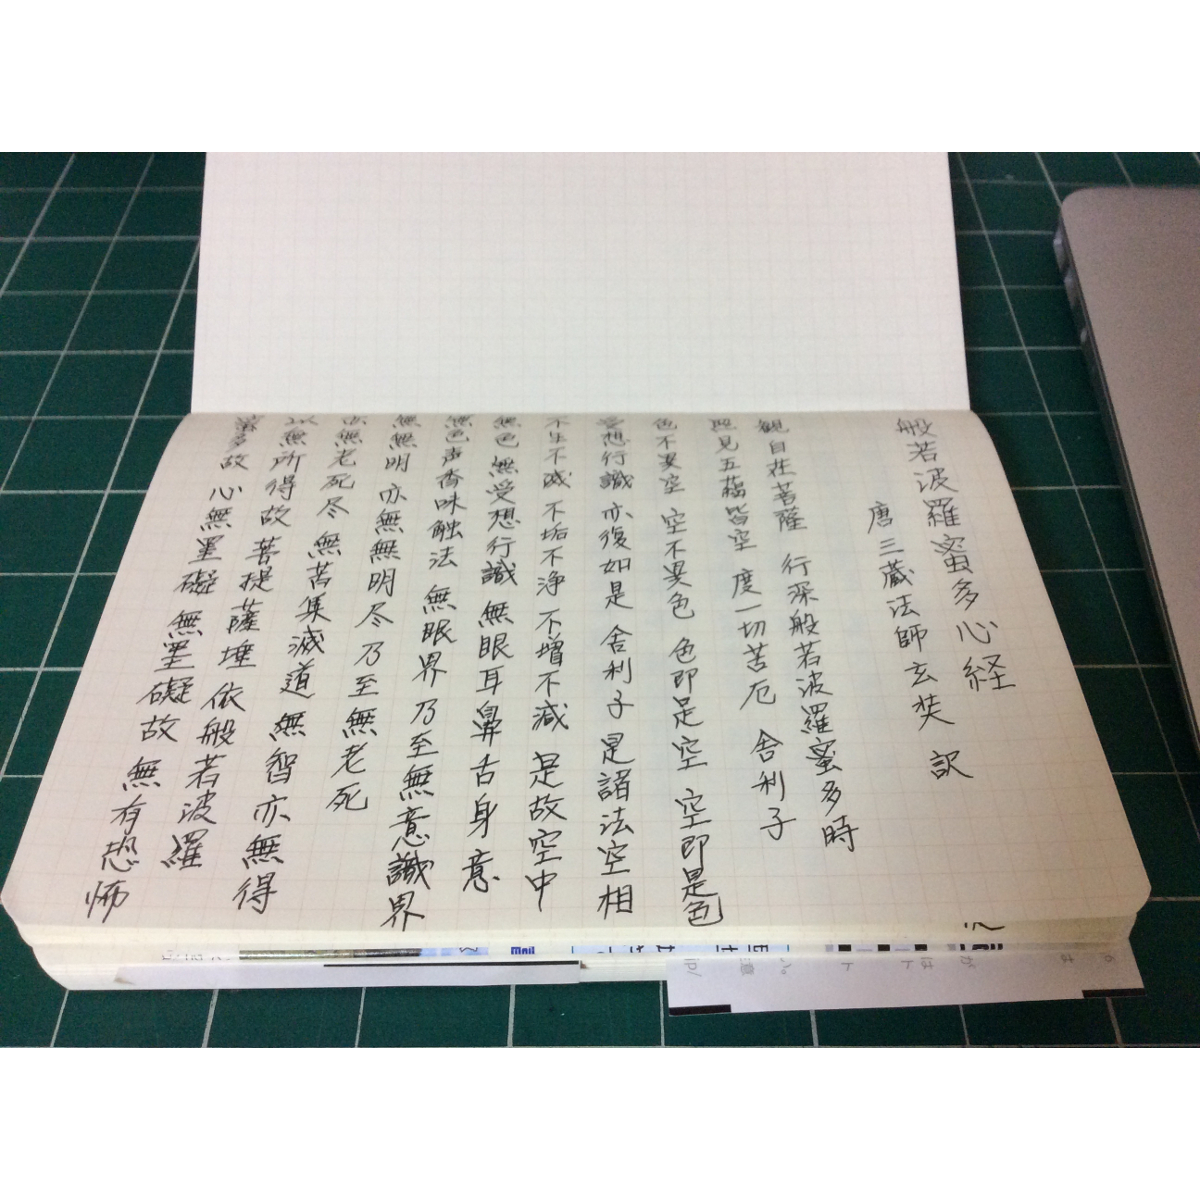 般若波羅蜜多心経
唐三蔵法師玄奘 訳
観自在菩薩 行深般若波羅蜜多時
照見五蘊皆空 度一切苦厄 舎利子
色不異空 空不異色 色即是空 空即是色
受想行識 亦復如是 舎利子 是諸法空相
不生不滅 不垢不浄 不増不減 是故空中
無色 無受想行識 無眼耳鼻舌身意
無色声香味触法 無眼界乃至無意識界
無無明 亦無無明尽 乃至無老死
亦無老死尽 無苦集滅道 無智亦無得
以無所得故 菩提薩埵 依般若波羅
蜜多故 心無罣礙 無罣礙故 無有恐怖